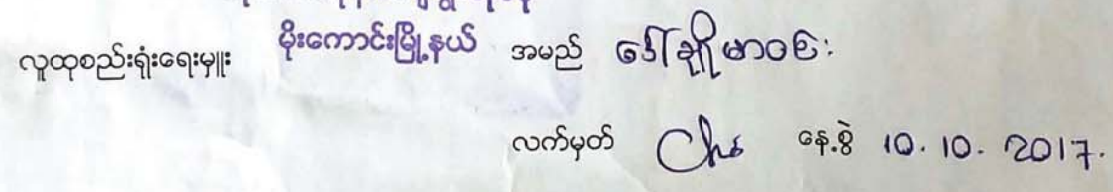 လူထုစည်းရုံးရေးမှူး မိုးကောင်းမြို့နယ် အမည် ဒေါ်ချိုမာဝင်း
လက်မှတ် Cho နေ့စွဲ 10.10.2017.